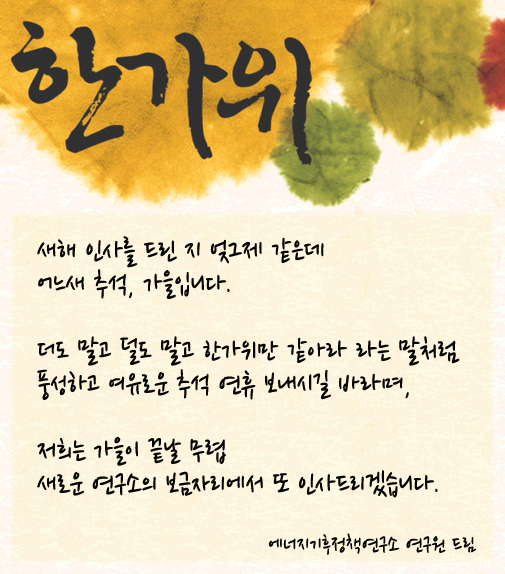 한가위
새해 인사를 드린 지 엊그제 같은데
어느새 추석, 가을입니다.
더도 말고 덜도 말고 한가위만 같아라 라는 말처럼
풍성하고 여유로운 추석 연휴 보내시길 바라며,
저희는 가을이 끝날 무렵
새로운 연구소의 보금자리에서 또 인사드리겠습니다.
에너지기후정책연구소 연구원 드림